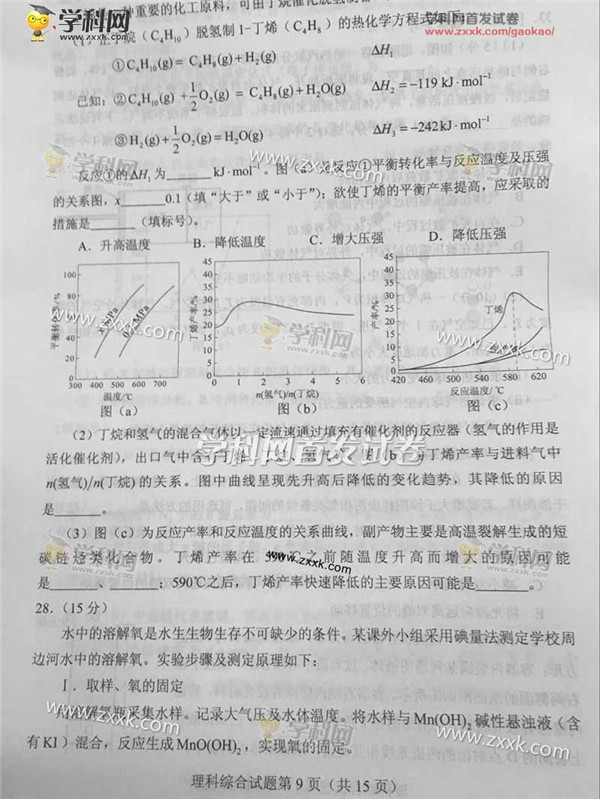 学科网
www.zxxk.com
学科网首发试卷
www.zxxk.com/gaokao/
种重要的化工原料，可由丁烷催化脱氢制
（1）正丁烷（C₄H₁₀）脱氢制1-丁烯（C₄H₈）的热化学方程式如下：
①C₄H₁₀(g)= C₄H₈(g)+H₂(g)  ΔH₁
已知：②C₄H₁₀(g)+1/2O₂(g)= C₄H₈(g)+H₂O(g)  ΔH₂=−119 kJ·mol⁻¹
③H₂(g)+1/2O₂(g)=H₂O(g)  ΔH₃=−242kJ·mol⁻¹
学科网
www.zxxk.com
反应①的ΔH₁为______kJ·mol⁻¹。图（a）是反应①平衡转化率与反应温度及压强
的关系图，x______0.1（填“大于”或“小于”）；欲使丁烯的平衡产率提高，应采取的
措施是______（填标号）。
A．升高温度 B．降低温度 C．增大压强 D．降低压强
平衡转 /%
100
80
60
40
20
0
300 400 500 600 700
温度/℃
图（a）
丁烯产率/%
45
40
35
30
25
20
15
10
5
0
0 1 2 3 4 5 6
n(氢气)/n(丁烷)
图（b）
产率/%
45
40
35
30
25
20
15
10
5
0
丁烯
420 460 500 540 580 620
反应温度/℃
图（c）
学科网
www.zxxk.com
（2）丁烷和氢气的混合气体以一定流速通过填充有催化剂的反应器（氢气的作用是
活化催化剂），出口气中含 为丁烯产率与进料气中
学科网首发试卷
n(氢气)/n(丁烷)的关系。图中曲线呈现先升高后降低的变化趋势，其降低的原因
是______。
（3）图（c）为反应产率和反应温度的关系曲线，副产物主要是高温裂解生成的短
碳链烃类化合物。丁烯产率在 ℃之前随温度升高而增大的原因可能
www.zxxk.com
是______、______；590℃之后，丁烯产率快速降低的主要原因可能是______。
28.（15分）
水中的溶解氧是水生生物生存不可缺少的条件。某课外小组采用碘量法测定学校周
边河水中的溶解氧。实验步骤及测定原理如下：
Ⅰ．取样、氧的固定
用溶解氧瓶采集水样。记录大气压及水体温度。将水样与Mn(OH)₂碱性悬浊液（含
有KI）混合，反应生成MnO(OH)₂，实现氧的固定。
学科网
www.zxxk.com
理科综合试题第9页（共15页）